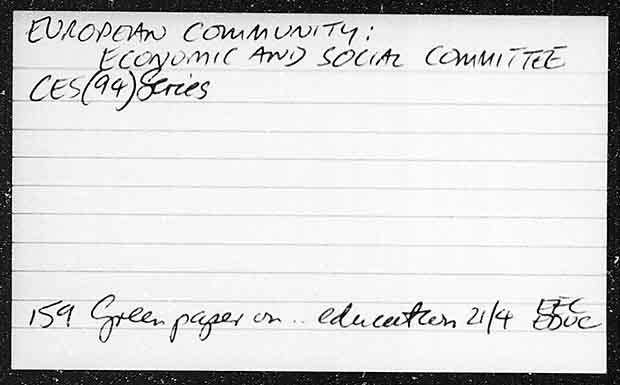 EUROPEAN COMMUNITY:
ECONOMIC AND SOCIAL COMMITTEE
CES(94) Series
159 Green paper on .. education 21/4 EEC
EDUC